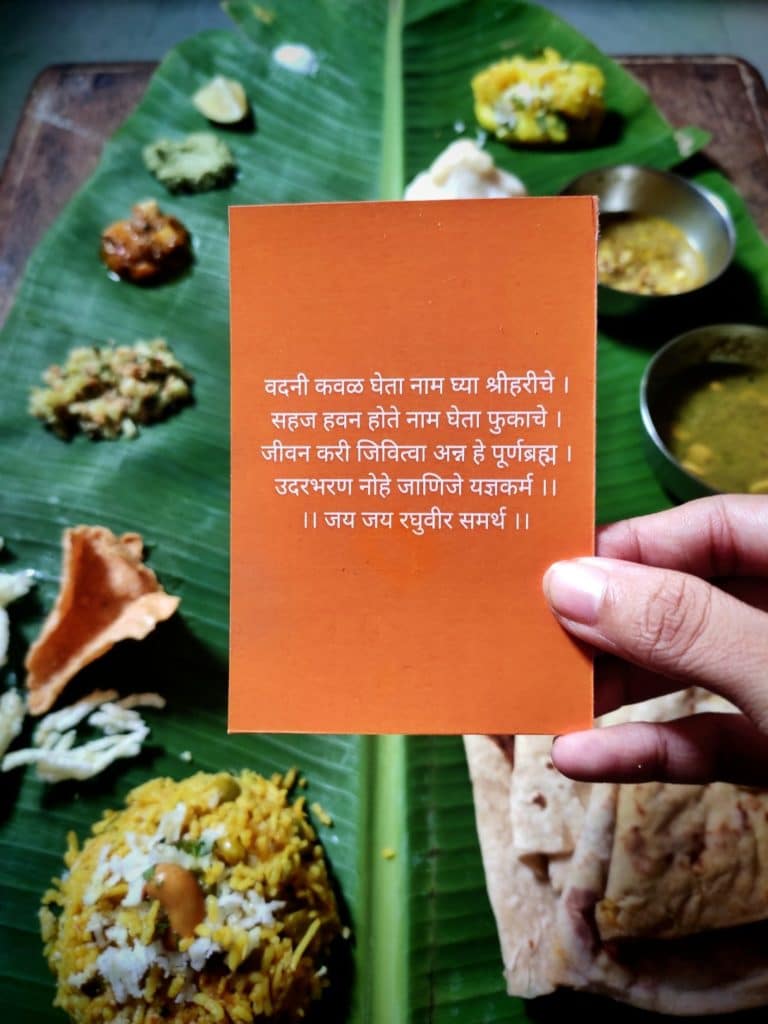 वदनी कवळ घेता नाम घ्या श्रीहरीचे ।
सहज हवन होते नाम घेता फुकाचे ।
जीवन करी जिवित्वा अन्न हे पूर्णब्रह्म ।
उदरभरण नोहे जाणिजे यज्ञकर्म ।।
।। जय जय रघुवीर समर्थ ।।